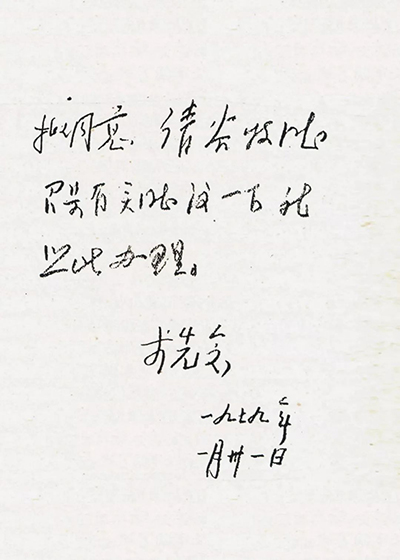 拟同意. 请谷牧同志
召集有关同志议一下 就
照此办理。
李先念
一九七九年
一月卅一日